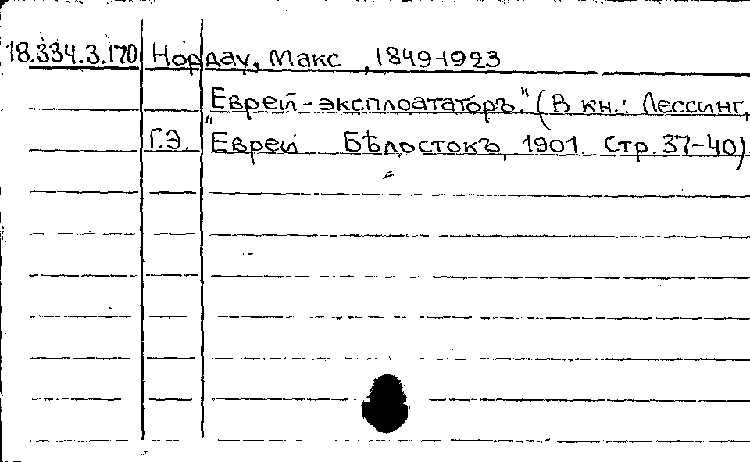 18.334.3.170 Нордау, Макс, 1849-1923
Еврей-эксплоататоръ." (В кн.: Лессинг,
Г.Э. "Еврей Бѣлостокъ, 1901. Стр. 37-40)